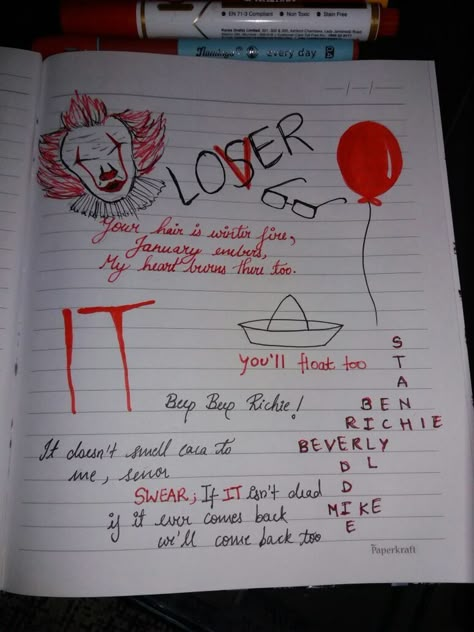 EN 71-3 Compliant • Non Toxic • Stain Free
Flamingo every day
LOSVER
Your hair is winter fire,
January embers,
My heart burns there too.
IT
you'll float too
S
T
A
BEN
RICHIE
BEVERLY
D L
D
MIKE
E
Beep Beep Richie!
It doesn't smell caca to
me, senor
SWEAR; If IT isn't dead
if it ever comes back
we'll come back too
Paperkraft